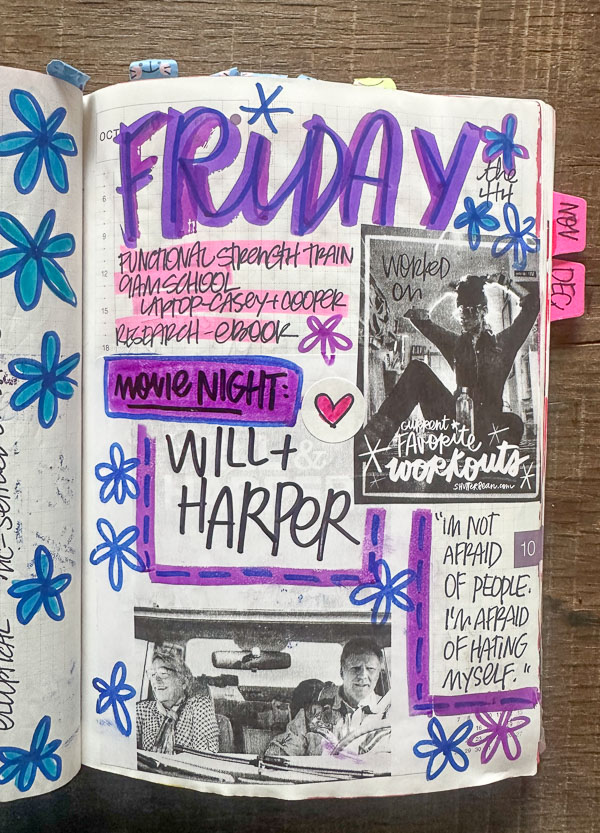 OCT
FRIDAY
the
4th
FUNCTIONAL STRENGTH TRAIN
9AM SCHOOL
LAPTOP-CASEY + COOPER
RESEARCH - EBOOK
WORKED
ON
CURRENT +
FAVORITE
WORKOUTS
SHUTTERBEAN.COM
MOVIE NIGHT:
WILL +
HARPER
"I'M NOT
AFRAID
OF PEOPLE.
I'M AFRAID
OF HATING
MYSELF."
10
NOV
DEC
6
9
12
15
18
elliptical